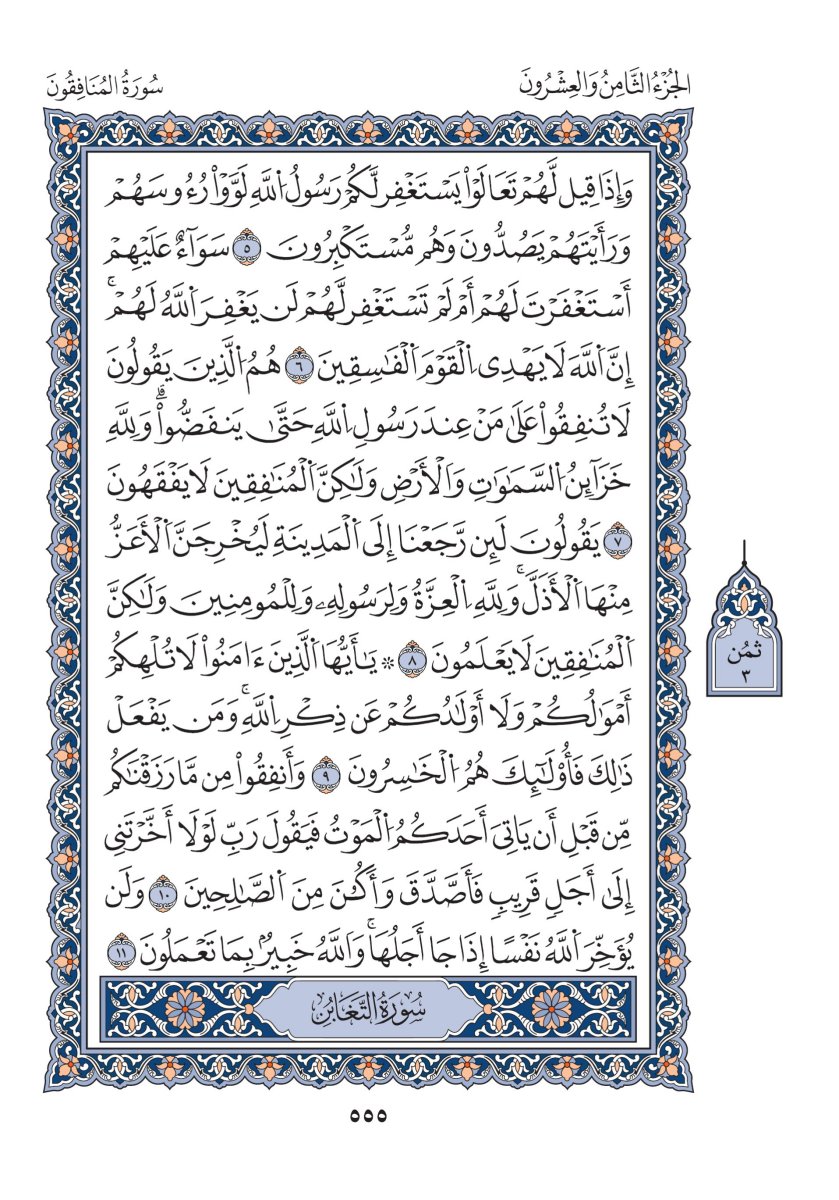 الجُزْءُ الثَّامِنُ وَالعِشْرُونَ
سُورَةُ المُنَافِقُونَ
وَإِذَا قِيل لَّهُمْ تَعَالَوْاْ يَسْتَغْفِر لَّكُمْ رَسُولُ اُللَّهِ لَوَّوْاْ رُءُوسَهُمْ
وَرَأَيْتَهُمْ يَصُدُّونَ وَهُم مُّسْتَكْبِرُونَ ٥ سَوَآءٌ عَلَيْهِمْ
أَسْتَغْفَرْتَ لَهُمْ أَمْ لَمْ تَسْتَغْفِر لَّهُمْ لَن يَغْفِرَ اَللَّهُ لَهُمْۚ
إِنَّ اَللَّهَ لَا يَهْدِى اِلْقَوْمَ اَلْفَٰسِقِينَ ٦ هُمُ اُلَّذِينَ يَقُولُونَ
لَا تُنفِقُواْ عَلَىٰ مَنْ عِندَ رَسُولِ اِللَّهِ حَتَّىٰ يَنفَضُّواْۗ وَلِلَّهِ
خَزَآئِنُ اُلسَّمَٰوَٰتِ وَالْأَرْضِ وَلَٰكِنَّ اَلْمُنَٰفِقِينَ لَا يَفْقَهُونَ
٧ يَقُولُونَ لَئِن رَّجَعْنَا إِلَى اَلْمَدِينَةِ لَيُخْرِجَنَّ اَلْأَعَزُّ
مِنْهَا اَلْأَذَلَّۚ وَلِلَّهِ اِلْعِزَّةُ وَلِرَسُولِهِۦ وَلِلْمُومِنِينَ وَلَٰكِنَّ
اَلْمُنَٰفِقِينَ لَا يَعْلَمُونَ ٨ ۞ يَٰأَيُّهَا اَلَّذِينَ ءَامَنُواْ لَا تُلْهِكُمْ
أَمْوَٰلُكُمْ وَلَا أَوْلَٰدُكُمْ عَن ذِكْرِ اِللَّهِۚ وَمَن يَفْعَلْ
ذَٰلِكَ فَأُوْلَٰٓئِكَ هُمُ اُلْخَٰسِرُونَ ٩ وَأَنفِقُواْ مِن مَّا رَزَقْنَٰكُم
مِّن قَبْلِ أَن يَاتِىَ أَحَدَكُمُ اُلْمَوْتُ فَيَقُولَ رَبِّ لَوْلَا أَخَّرْتَنِى
إِلَىٰ أَجَلٍ قَرِيبٍ فَأَصَّدَّقَ وَأَكُۥنَ مِنَ اَلصَّٰلِحِينَ ١٠ وَلَن
يُؤَخِّرَ اَللَّهُ نَفْسًا إِذَا جَا أَجَلُهَاۚ وَاَللَّهُ خَبِيرُۢ بِمَا تَعْمَلُونَ ١١
ثُمُن
٣
سُورَةُ التَّغَابُنِ
٥٥٥